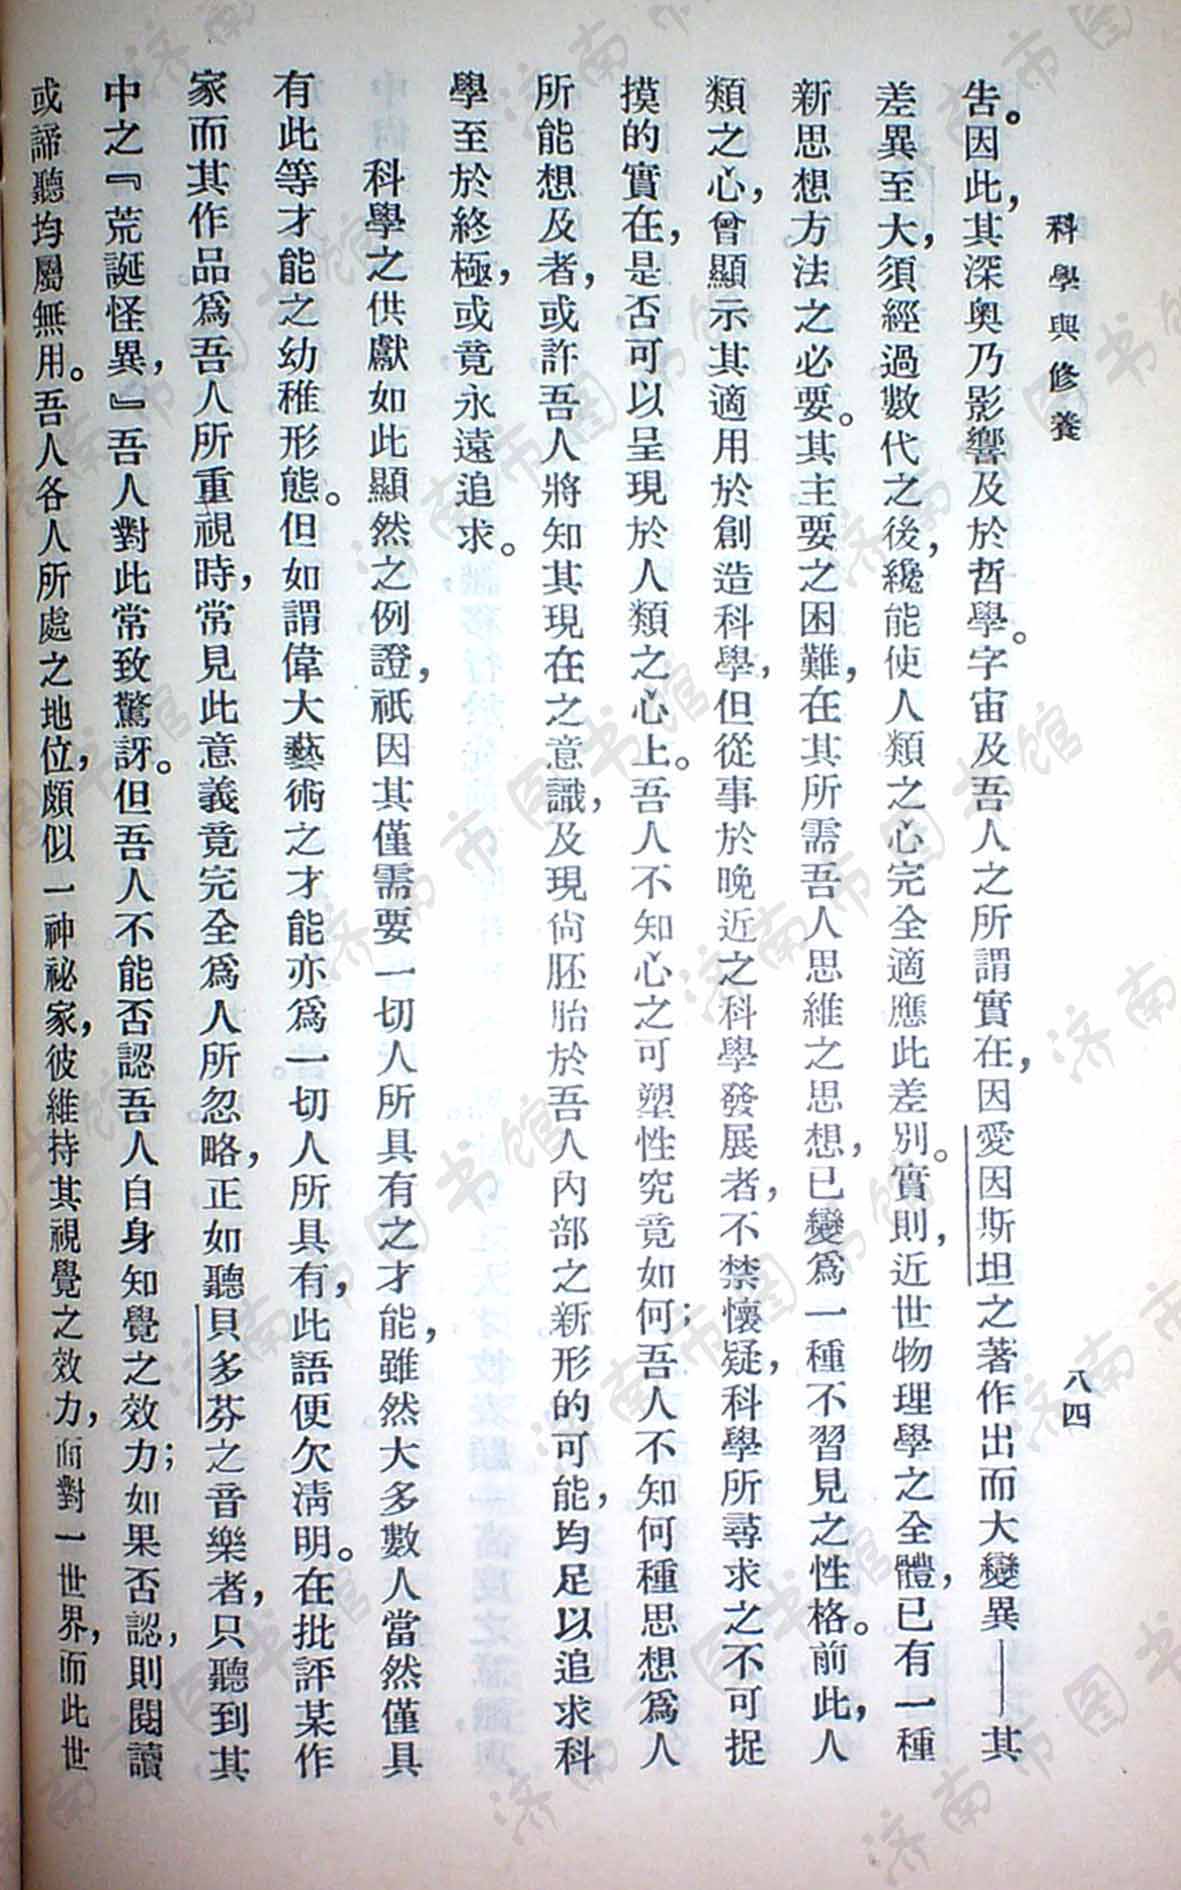 科學與修養
八四
告。因此，其深奥乃影響及於哲學。字宙及吾人之所謂實在，因愛因斯坦之著作出而大變異——其
差異至大，須經過數代之後，纔能使人類之心完全適應此差別。實則，近世物理學之全體，已有一種
新思想方法之必要。其主要之困難，在其所需吾人思維之思想，已變爲一種不習見之性格。前此，人
類之心，曾顯示其適用於創造科學，但從事於晚近之科學發展者，不禁懷疑，科學所尋求之不可捉
摸的實在，是否可以呈現於人類之心上。吾人不知心之可塑性究竟如何；吾人不知何種思想爲人
所能想及者，或許吾人將知其現在之意識，及現尙胚胎於吾人內部之新形的可能，均足以追求科
學至於終極，或竟永遠追求。
科學之供獻如此顯然之例證，祇因其僅需要一切人所具有之才能，雖然大多數人當然僅具
有此等才能之幼稚形態。但如謂偉大藝術之才能亦爲一切人所具有，此語便欠淸明。在批評某作
家而其作品爲吾人所重視時，常見此意義竟完全爲人所忽略，正如聽貝多芬之音樂者，只聽到其
中之『荒誕怪異，』吾人對此常致驚訝。但吾人不能否認吾人自身知覺之效力；如果否認，則閱讀
或諦聽均屬無用。吾人各人所處之地位，頗似一神祕家，彼維持其視覺之效力，而對一世界，而此世
济南市图书馆